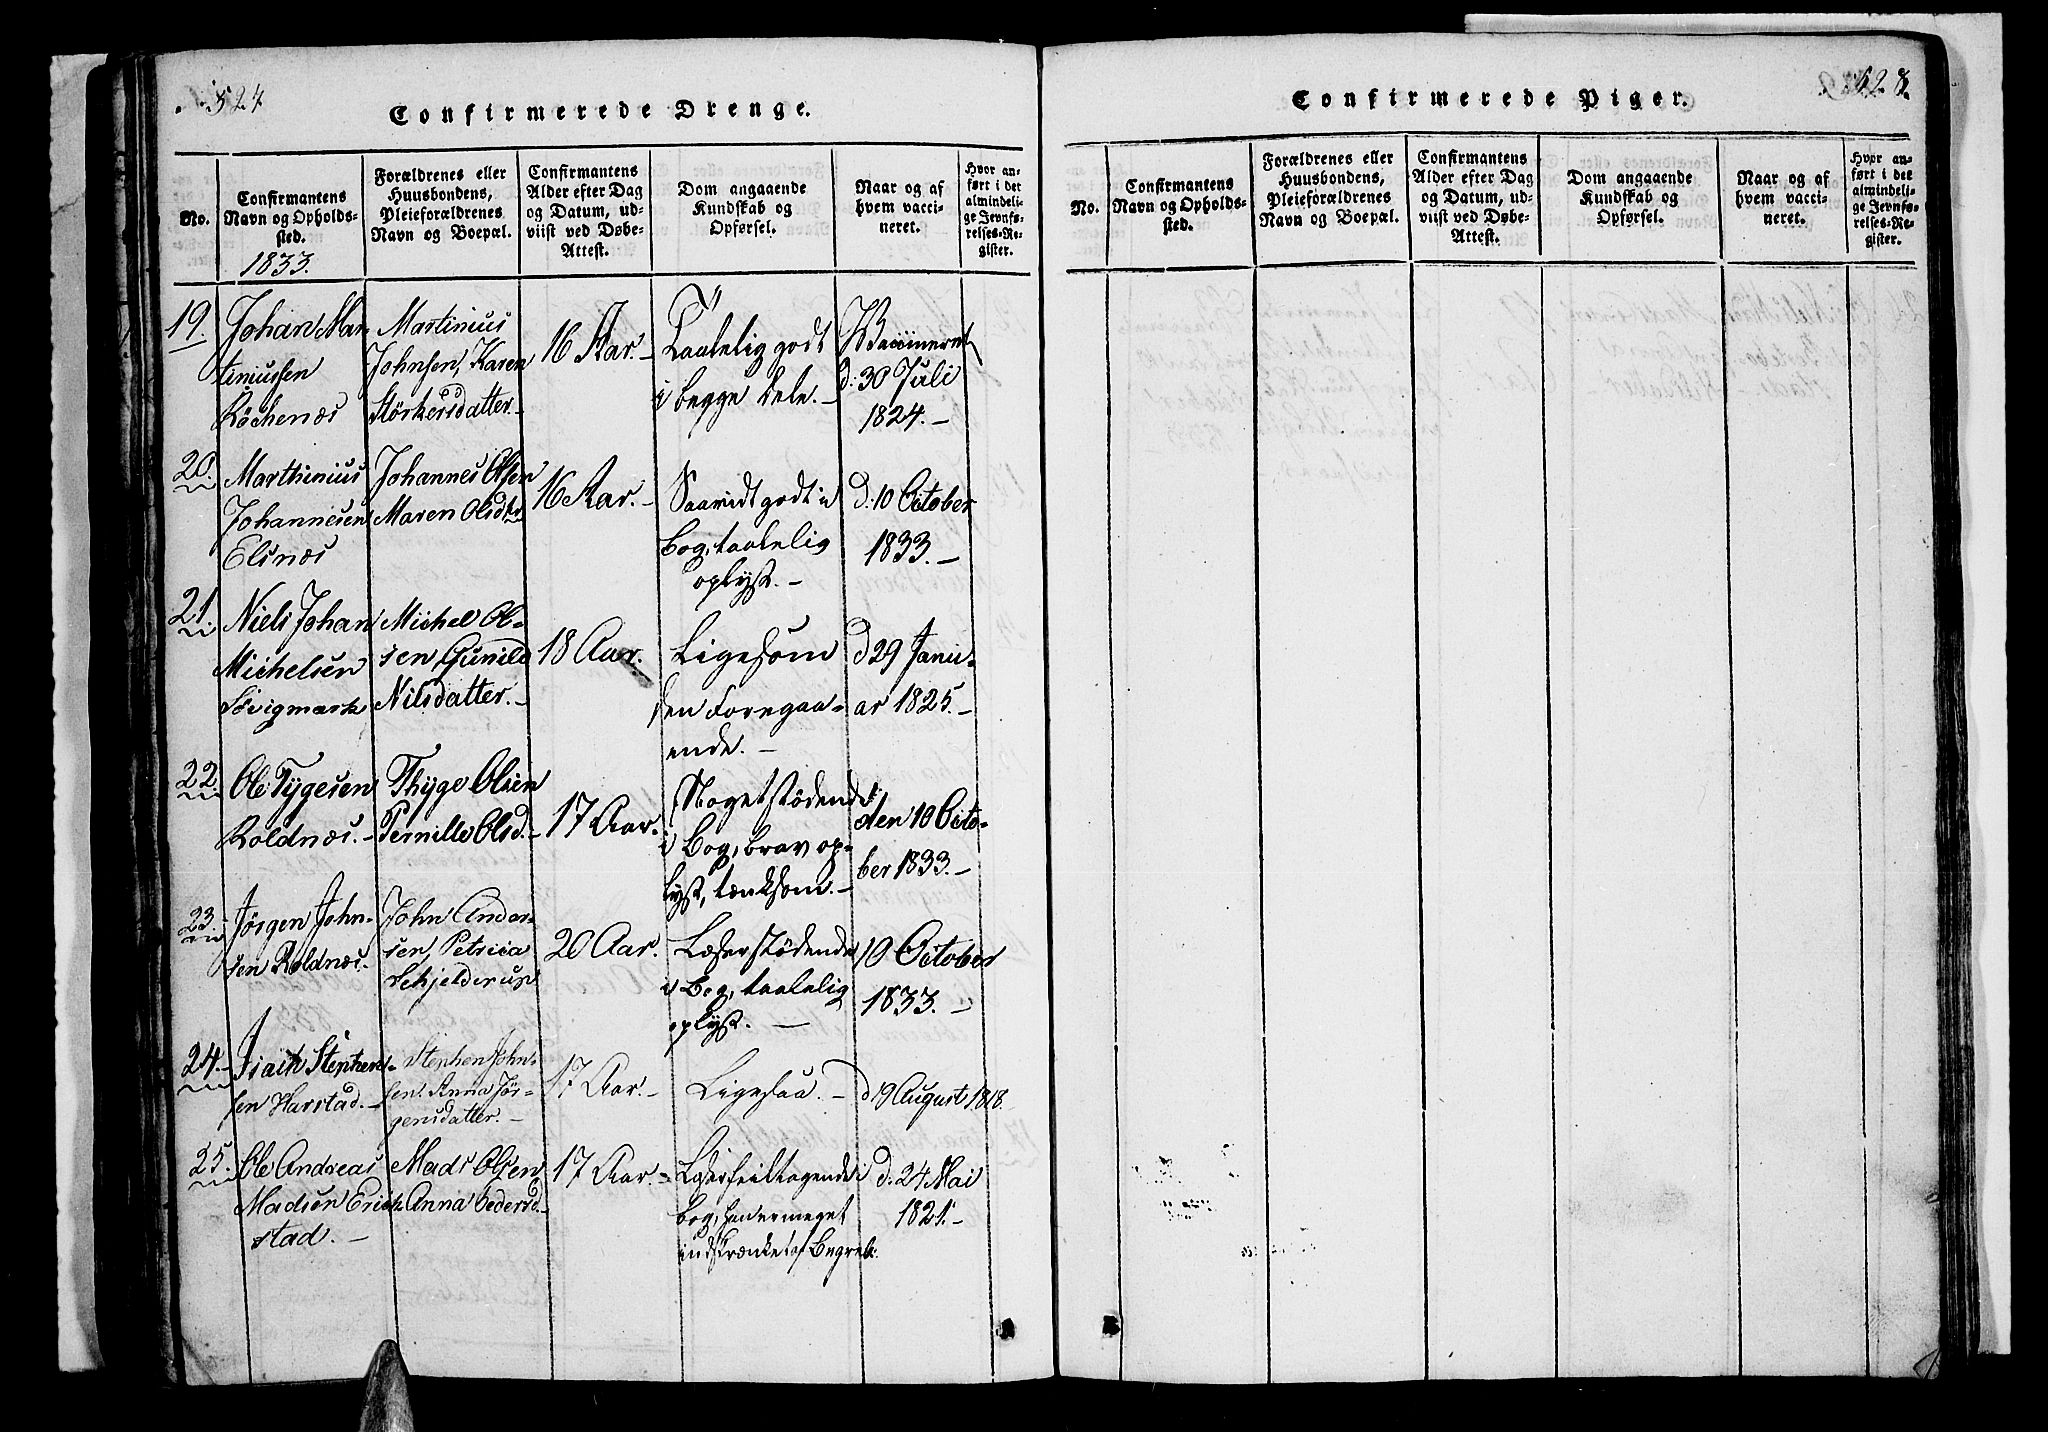 524
Confirmerede Drenge.
No.
Confirmantens
Navn og Opholds-
sted.
1833.
Forældrenes eller
Huusbondens,
Pleieforældrenes
Navn og Boepæl.
Confirmantens
Alder efter Dag
og Datum, ud-
viist ved Døbe-
Attest.
Dom angaaende
Kundskab og
Opførsel.
Naar og af
hvem vacci-
neret.
Hvor an-
ført i det
almindeli-
ge Jevnfø-
relses-Re-
gister.
19
Johan Mar-
tiniussen
Röchenæs
Martinius
Johnsen, Karen
Störkersdatter.
16 Aar.
Taalelig godt
i begge Dele.
Vaccineret
d: 30 Juli
1824.
20.
Marthinius
Johannesen
Elsnæs
Johannes Olsen
Maren Olsdtr
16 Aar.
Saavidt godt i
Bog, taalelig
oplyst.
d: 10 October
1833.
21.
Niels Johan
Michelsen
Sövigmark
Michel Ol-
sen Gunild
Nilsdatter.
18 Aar.
Ligesom
den Foregaa-
ende.
d 29 Janu-
ar 1825.
22.
Ole Tygesen
Roldnæs.
Thyge Olsen
Pernille Olsd.
17 Aar.
Noget stødende
i Bog, brav op-
lyst, tænksom.
den 10 Octo-
ber 1833.
23.
Jörgen John-
sen Roldnæs.
John Ander-
sen, Petricia
Schjelderup
20 Aar.
Læser stødende
i Bog, taalelig
oplyst.
10 October
1833.
24.
Isach Stephen-
sen Harstad.
Stephen John-
sen. Anna Jör-
gensdatter.
17 Aar.
Ligesaa.
d 19 August 1818.
25.
Ole Andreas
Madsen Erich-
stad.
Mads Olsen
Anna Pedersd.
17 Aar.
Læser feiltagende i
Bog, han er meget
indskrænket af Begreb.
d. 24 Mai
1821.
528.
Confirmerede Piger.
No.
Confirmantens
Navn og Opholds-
sted.
Forældrenes eller
Huusbondens,
Pleieforældrenes
Navn og Boepæl.
Confirmantens
Alder efter Dag
og Datum, ud-
viist ved Døbe-
Attest.
Dom angaaende
Kundskab og
Opførsel.
Naar og af
hvem vacci-
neret.
Hvor an-
ført i det
almindeli-
ge Jevnfø-
relses-Re-
gister.